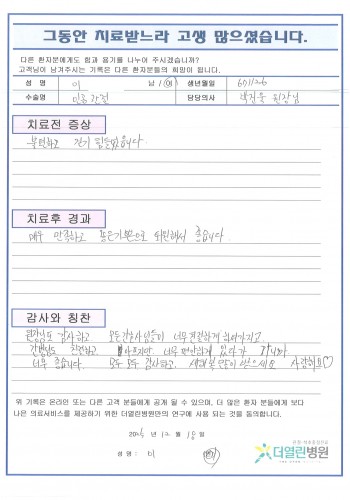 그동안 치료받느라 고생 많으셨습니다.
다른 환자분에게도 힘과 용기를 나누어 주시겠습니까?
고객님이 남겨주시는 기록은 다른 환자분들의 희망이 됩니다.
성 명 이 남/여 생년월일
수술명 인공관절 담당의사 원장님
치료전 증상
불편하고 걷기 힘들었습니다
치료후 경과
매우 만족하고 좋은기분으로 퇴원해서 좋습니다
감사와 칭찬
원장님도 감사하고 모든간호사님들이 너무친절하게 해주시고
친절하고 너무 편안하게 있다가 갑니다
너무 좋습니다. 모두 모두 감사하고 새해복 많이 받으세요 사랑해요♡
위 기록은 온라인 또는 다른 고객 분들에게 공개 될 수 있으며, 더 많은 환자 분들에게 보다
나은 의료서비스를 제공하기 위한 더열린병원만의 연구에 사용 되는 것을 동의합니다.
년 12 월 일
성 명 : 이
더열린병원